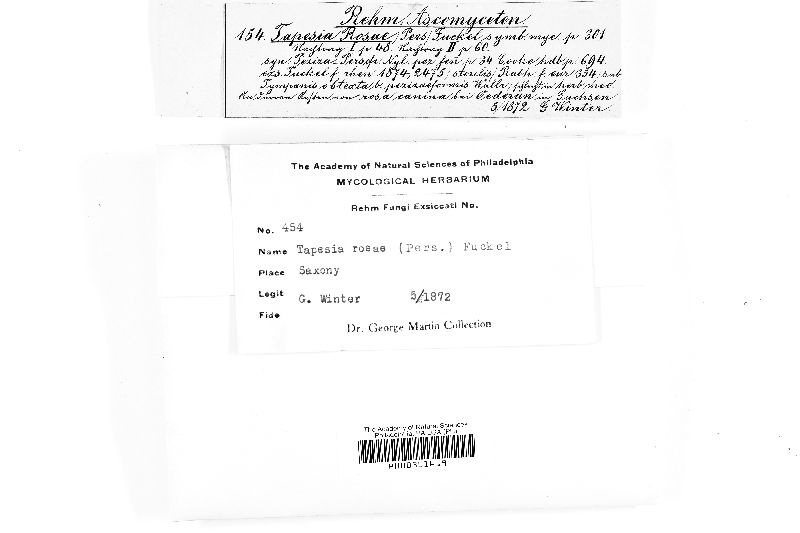 Rehm, Ascomyceten
154. Tapesia Rosae, Pers. Fuckel symb. myc. p. 301
I p. 48. II p. 60.
syn. Peziza Nyl. pez. fen. p. 34 Cooke hdb. p. 694.
exs. Fuckel f. rhen. 1874, 2475, sterilis Rabh. f. eur. 354. sub
Tympanis obtexta b. pezizaeformis Wallr. in herb. meo.
von rosa canina bei Oederan in Sachsen
5/1872 G Winter.
The Academy of Natural Sciences of Philadelphia
MYCOLOGICAL HERBARIUM
Rehm Fungi Exsiccati No.
No. 454
Name Tapesia rosae (Pers.) Fuckel
Place Saxony
Legit G. Winter 5/1872
Fide
Dr. George Martin Collection
The Academy of Natural Sciences
Philadelphia, PA USA (PH)